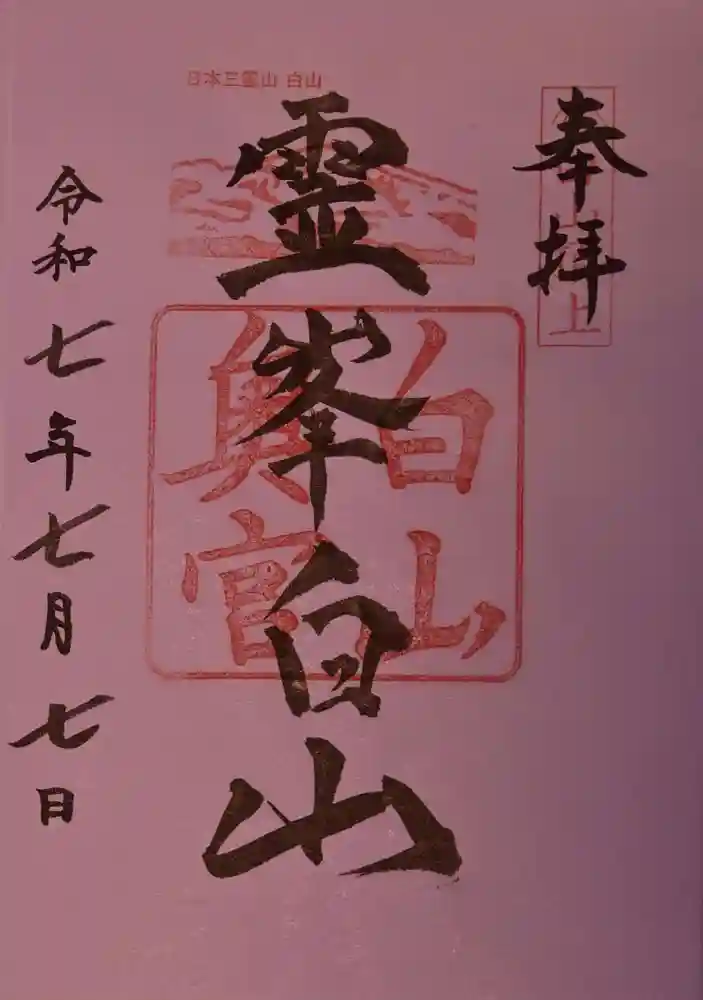 奉拝
上
日本三霊山 白山
霊峯白山
白山
奥宮
令和七年七月七日